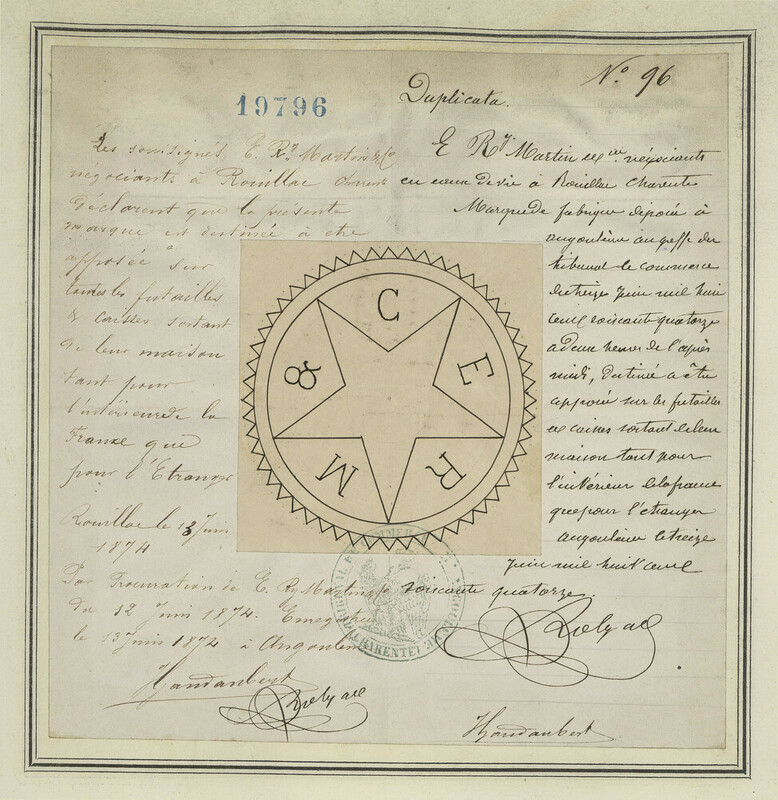 19796
Les soussignés E. Ry Martin & Co
négociants à Rouillac Charente
déclarent que la présente
marque est destinée à être
apposée sur
toutes les futailles
& caisses sortant
de leur maison
tant pour
l'intérieur de la
France que
pour l'Etranger
Rouillac le 13 Juin
1874
Par Procuration de E. Ry Martin & Co
du 12 Juin 1874. Enregistrée
le 13 Juin 1874 à Angoulême
Handanbert
No 96
Duplicata.
E Ry Martin et Cie négociants
en eaux de vie à Rouillac Charente
Marque de fabrique déposée à
angoulême au greffe du
tribunal de commerce
le treize Juin mil huit
cent soixante quatorze
a deux heures de l'après
midi, destinée a être
apposée sur les futailles
et caisses sortant de leur
maison tant pour
l'intérieur de la france
que pour l'étranger
angoulême le treize
Juin mil huit cent
soixante quatorze.
Handanbert
C
E
R
M
&
TRIBUNAL DE COMMERCE
(CHARENTE)